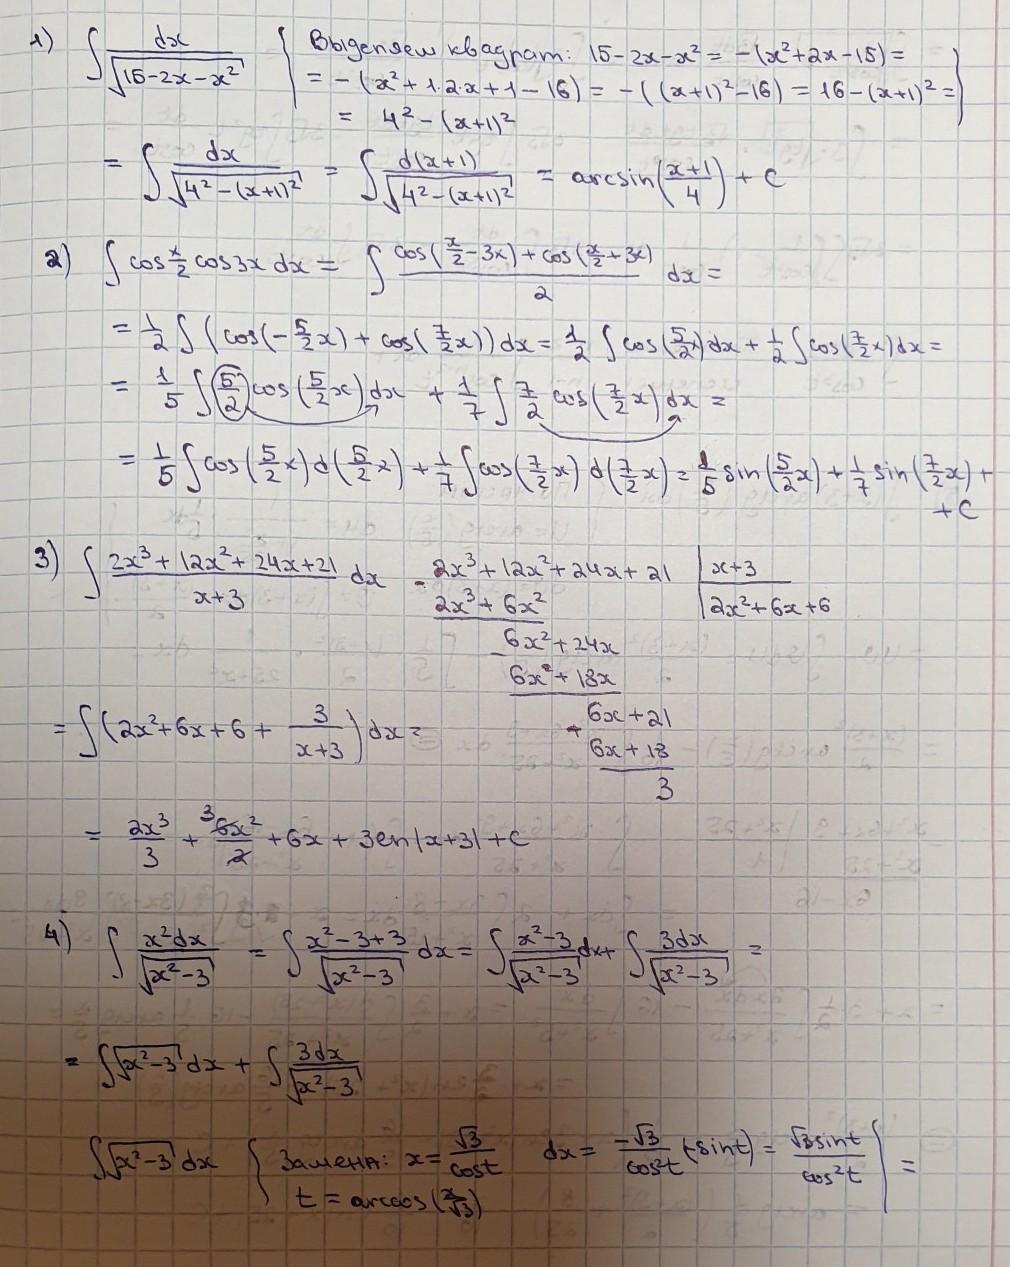 1) ∫ dx/√(15-2x-x²) { Выделяем квадрат: 15-2x-x² = -(x²+2x-15) =
= -(x²+1·2·x+1-16) = -((x+1)²-16) = 16-(x+1)² = }
= 4²-(x+1)²
= ∫ dx/√(4²-(x+1)²) = ∫ d(x+1)/√(4²-(x+1)²) = arcsin((x+1)/4) + C
2) ∫ cos x/2 cos3x dx = ∫ (cos(x/2-3x)+cos(x/2+3x))/2 dx =
= 1/2 ∫ (cos(-5/2x) + cos(7/2x)) dx = 1/2 ∫ cos(5/2x) dx + 1/2 ∫ cos(7/2x) dx =
= 1/5 ∫ 5/2 cos(5/2x) dx + 1/7 ∫ 7/2 cos(7/2x) dx =
= 1/5 ∫ cos(5/2x) d(5/2x) + 1/7 ∫ cos(7/2x) d(7/2x) = 1/5 sin(5/2x) + 1/7 sin(7/2x) +
+ C
3) ∫ (2x³+12x²+24x+21)/(x+3) dx
- 2x³+12x²+24x+21 | x+3
2x³+6x² | 2x²+6x+6
- 6x²+24x
6x²+18x
- 6x+21
6x+18
3
= ∫ (2x²+6x+6 + 3/(x+3)) dx =
= 2x³/3 + 3 6x²/2 + 6x + 3ln|x+3| + C
4) ∫ x²dx/√(x²-3) = ∫ (x²-3+3)/√(x²-3) dx = ∫ (x²-3)/√(x²-3) dx + ∫ 3dx/√(x²-3) =
= ∫ √(x²-3) dx + ∫ 3dx/√(x²-3)
∫ √(x²-3) dx { Замена: x = √3/cost dx = -√3/cos²t (-sint) = √3sint/cos²t } =
t = arccos(x/√3)